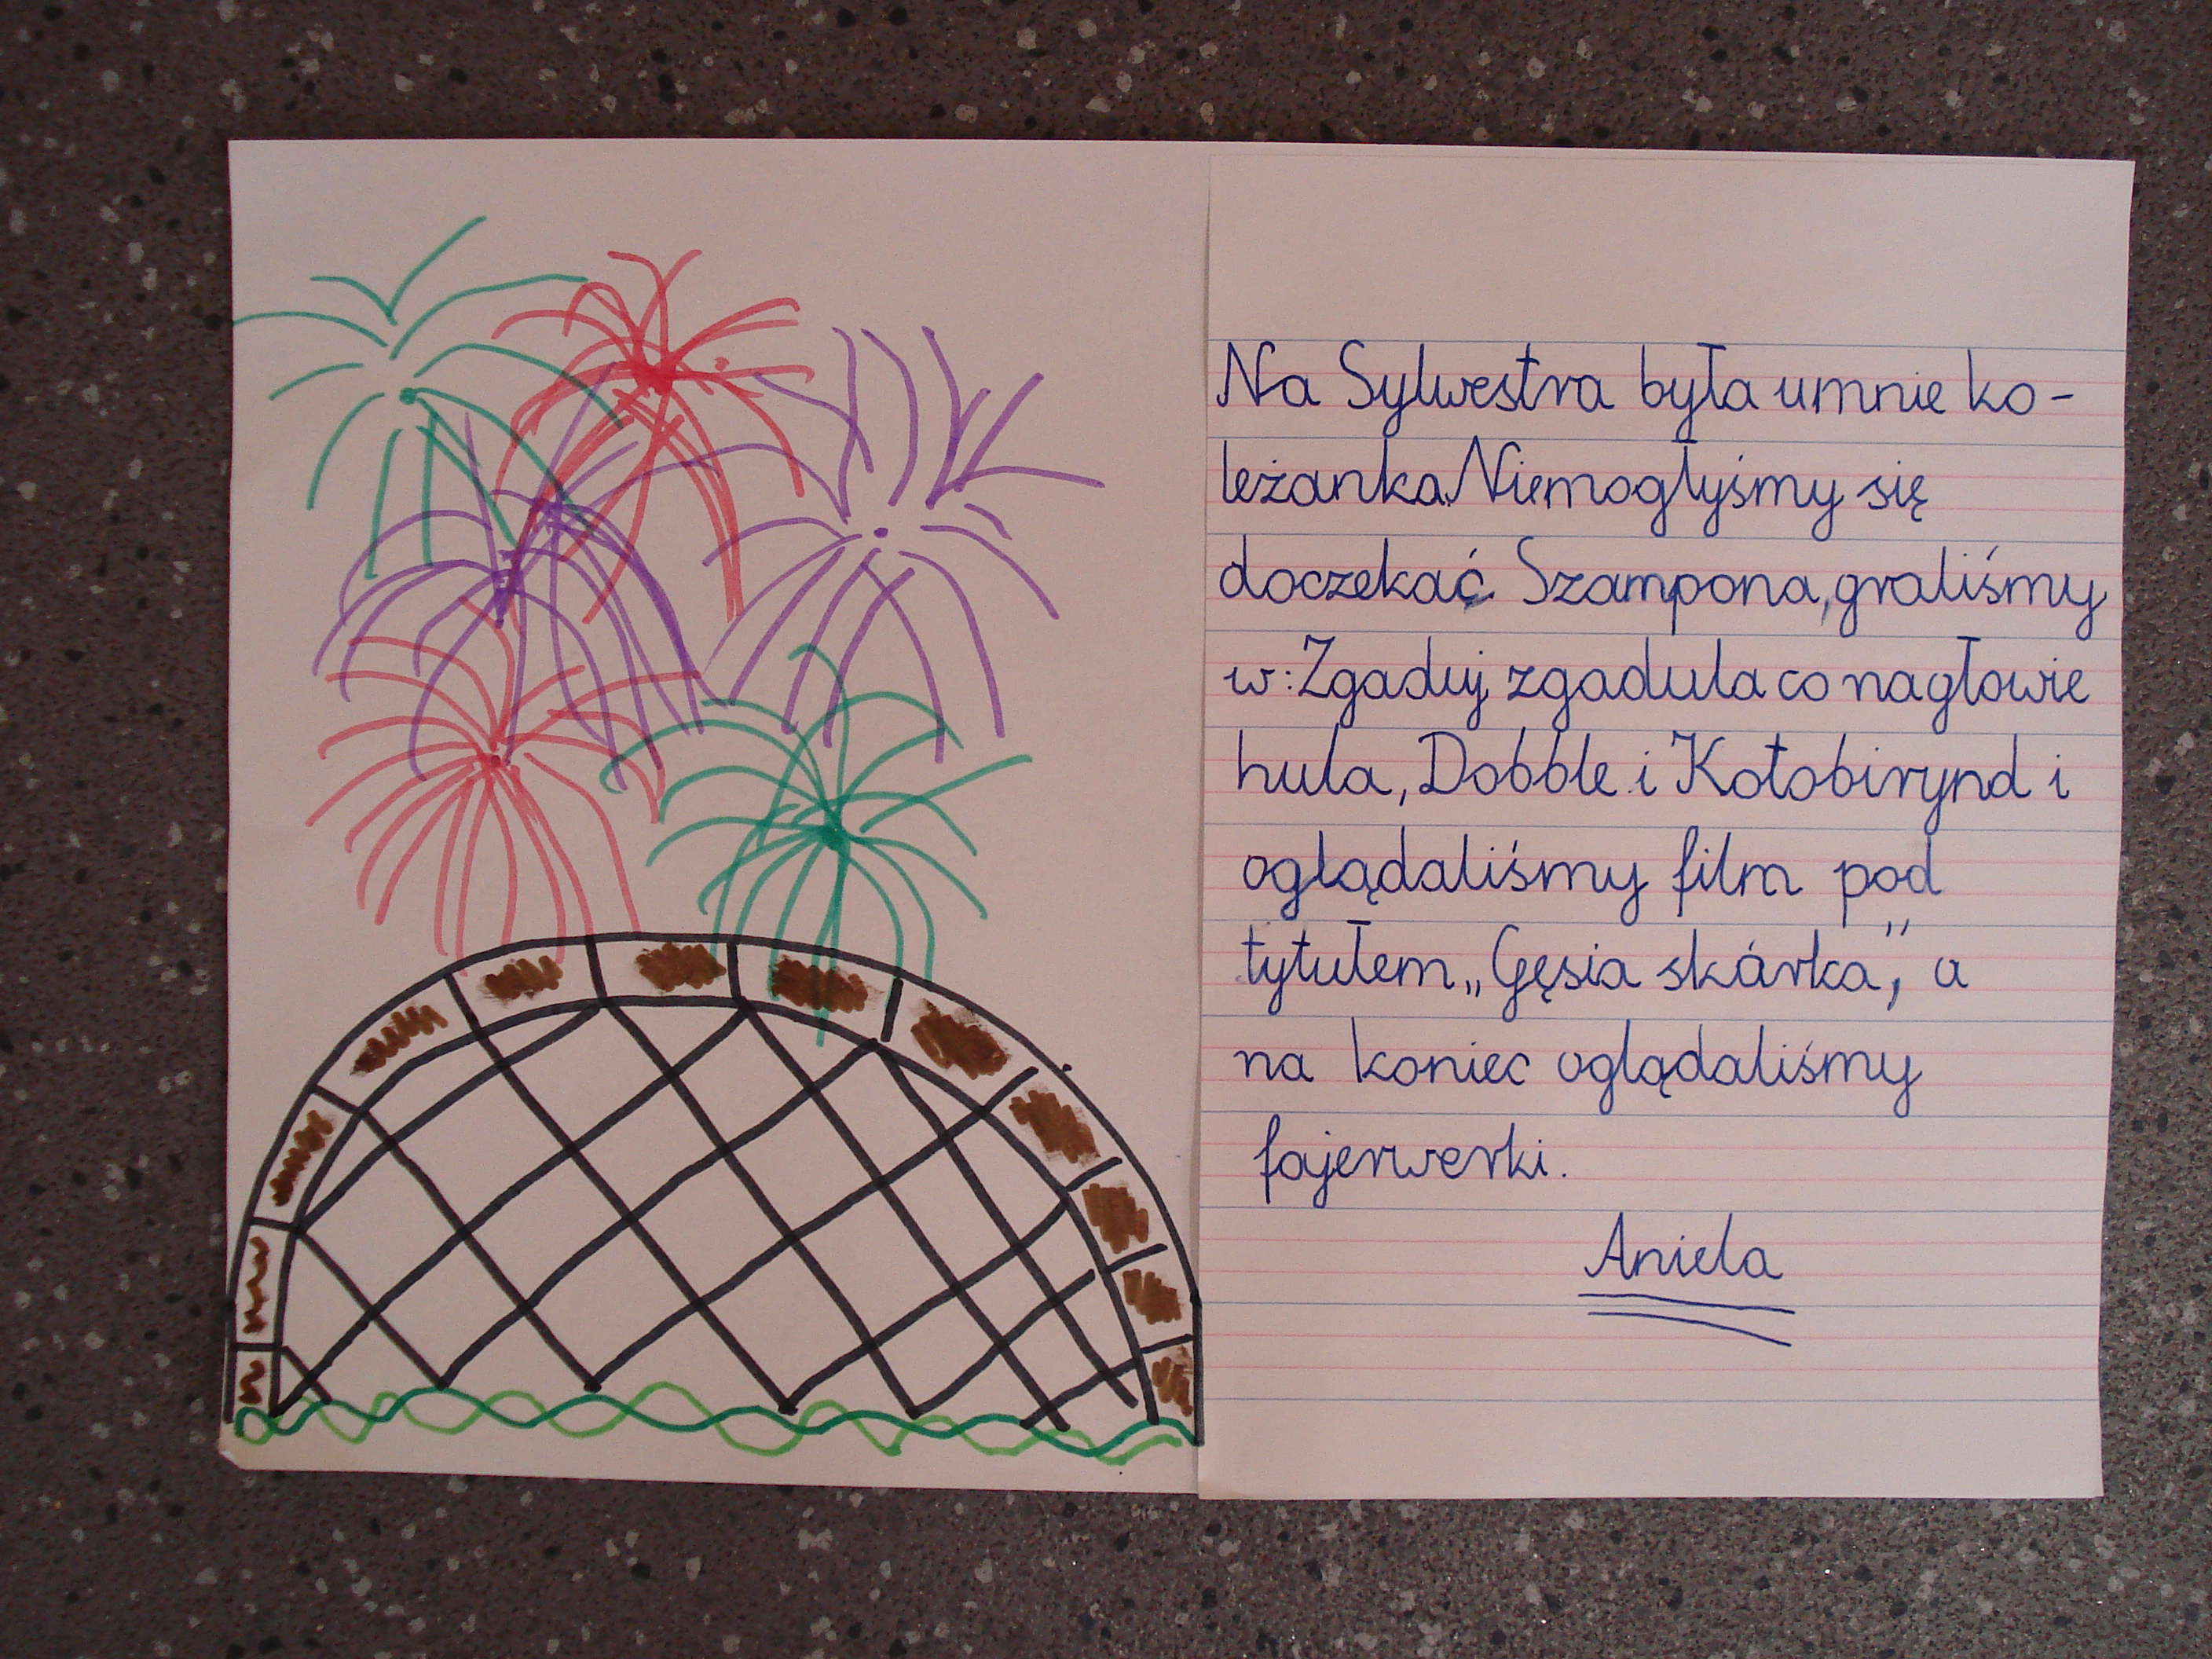 Na Sylwestra była umnie ko-
leżanka.Niemogłyśmy się
doczekać Szampona, graliśmy
w: Zgaduj zgadula co nagłowie
hula, Dobble i Kołobirynd i
oglądaliśmy film pod
tytułem „Gęsia skárka”, a
na koniec oglądaliśmy
fajerwerki.
Aniela